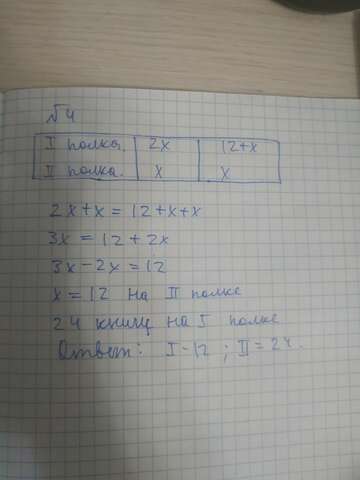 №4
I полка. 2x 12+x
II полка. x x
2x+x = 12+x+x
3x = 12+2x
3x-2x=12
x=12 на II полке
24 книги на I полке
Ответ: I-12; II=24.